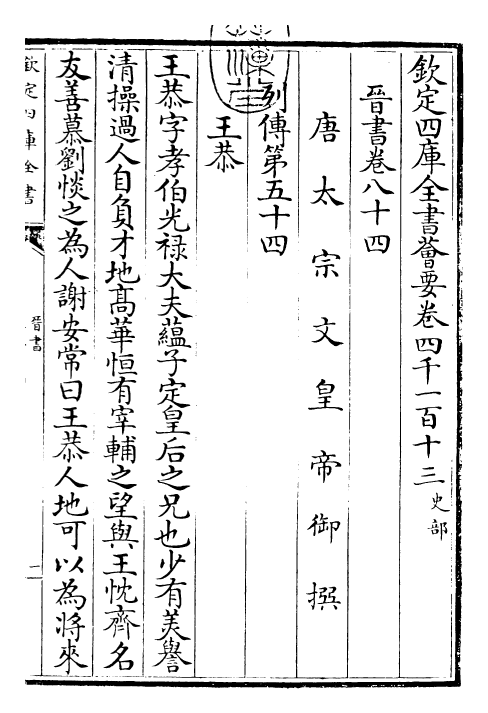 欽定四庫全書薈要卷四千一百十三 史部
晉書卷八十四
唐太宗文皇帝御撰
列傳第五十四
王恭
王恭字孝伯光禄大夫蘊子定皇后之兄也少有美譽
清操過人自負才地髙華恒有宰輔之望與王忱齊名
友善慕劉惔之為人謝安常曰王恭人地可以為將來
欽定四庫全書
晉書
一